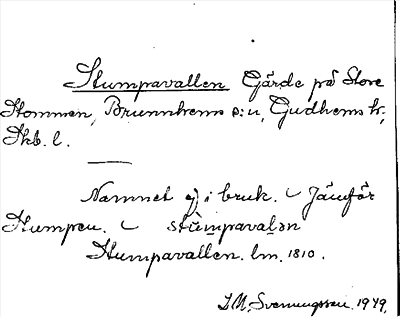 Stumpavallen Gärde på Store
Stommen, Brunnhems s:n, Gudhems hr,
Skb. l.
Namnet ej i bruk. Jämför
Stumpen. stùmpavalən
Stumpavallen. lm. 1810.
I.M. Svenungsson. 1949.